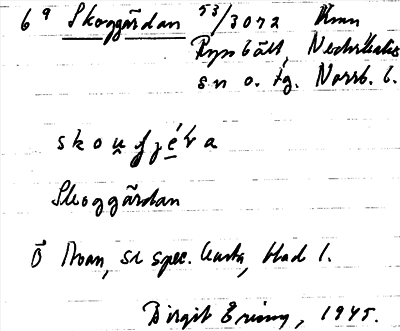 6 9 Skoggärdan 53/3072
Nederkalix
sn o. tg. Norrb. l.
skouʃjéra
Skoggärdan
Ö Moan, se spec. karta, blad 1.
Birgit Ering, 1945.